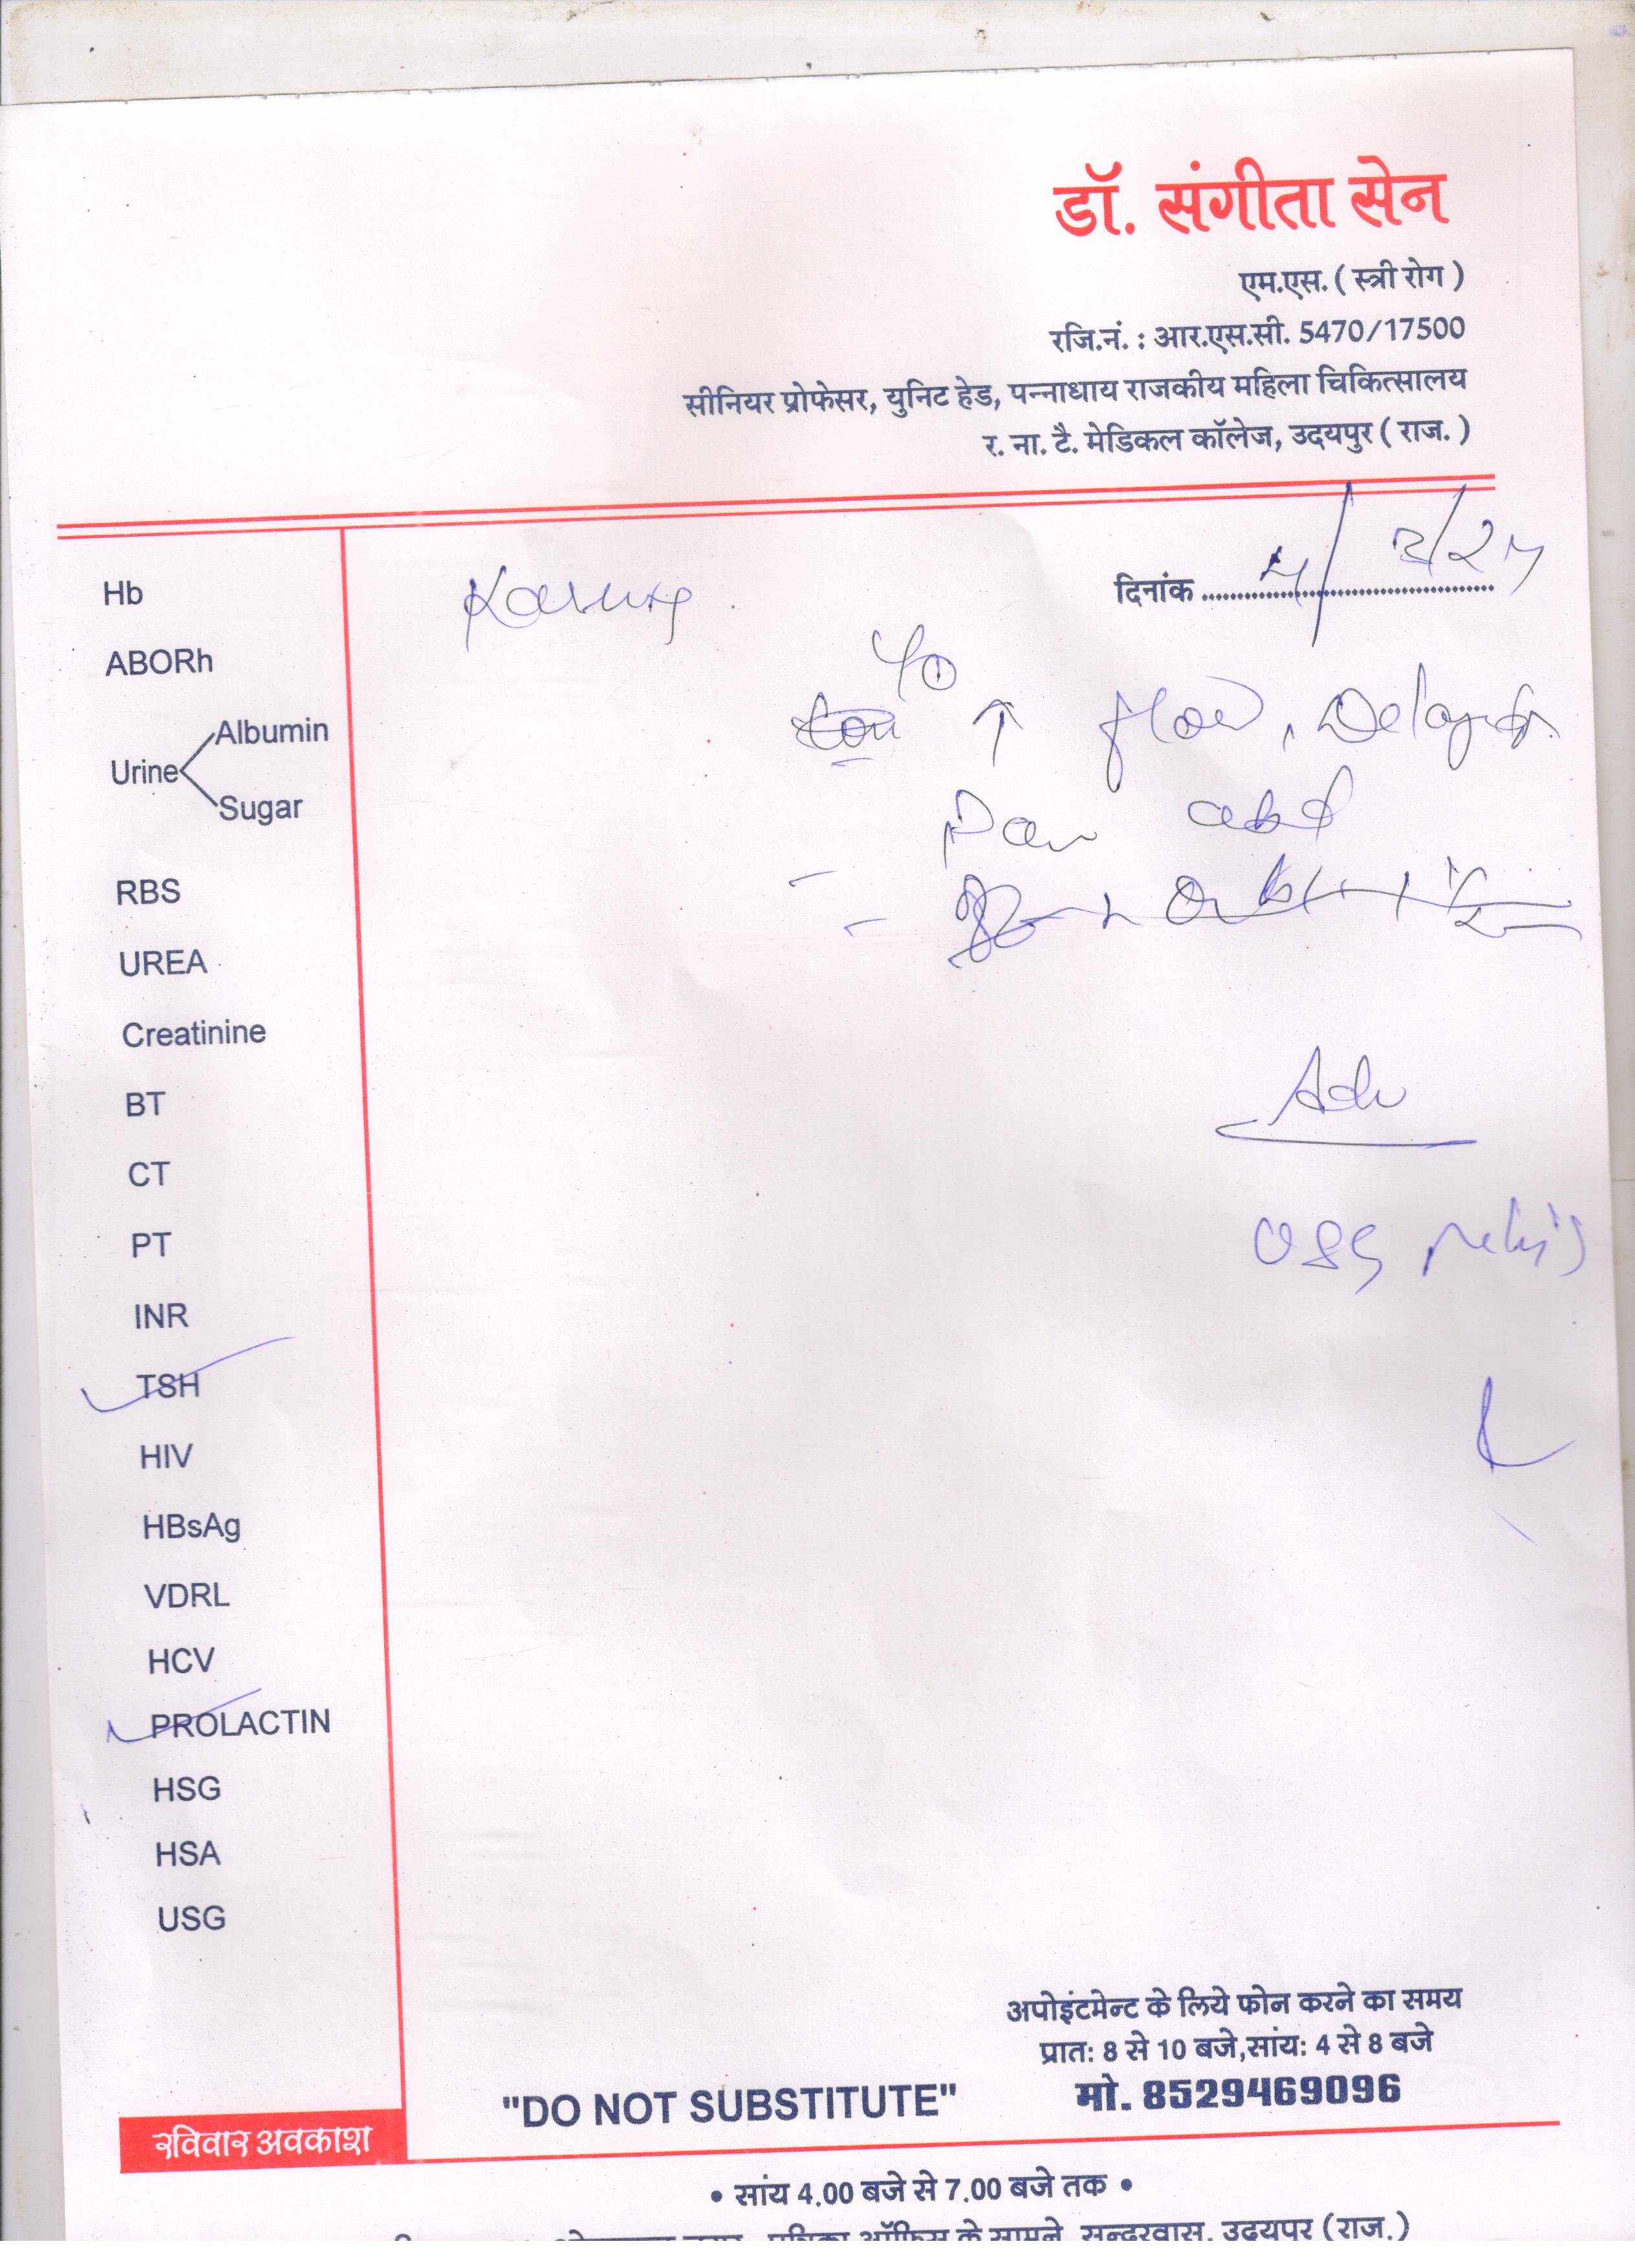 डॉ. संगीता सेन
एम.एस. ( स्त्री रोग )
रजि.नं. : आर.एस.सी. 5470/17500
सीनियर प्रोफेसर, युनिट हेड, पन्नाधाय राजकीय महिला चिकित्सालय
र. ना. टै. मेडिकल कॉलेज, उदयपुर ( राज. )
दिनांक
Hb
ABORh
Albumin
Urine
Sugar
↑ flow,
Pain abd
RBS
UREA
Creatinine
Adv
BT
CT
PT
INR
TSH
HIV
HBsAg
VDRL
HCV
PROLACTIN
HSG
HSA
USG
अपोइंटमेन्ट के लिये फोन करने का समय
प्रात: 8 से 10 बजे,सांय: 4 से 8 बजे
"DO NOT SUBSTITUTE" मो. 8529469096
रविवार अवकाश
• सांय 4.00 बजे से 7.00 बजे तक •
ऑफिस के सामने, सुन्दरवास, उदयपुर (राज.)